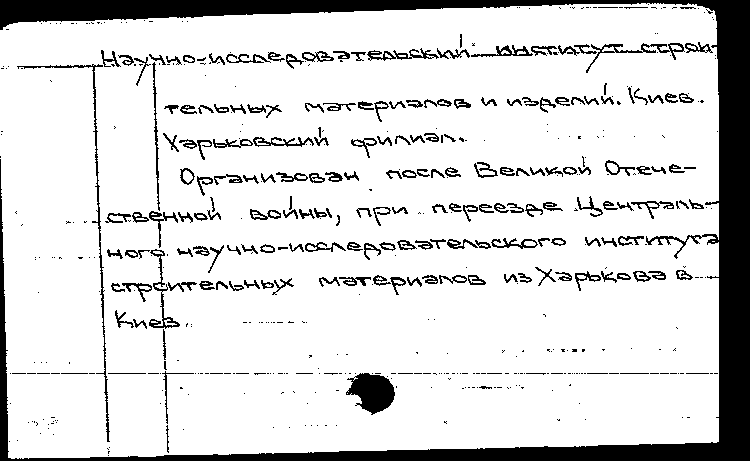 Научно-исследовательский институт строи-
тельных материалов и изделий. Киев.
Харьковский филиал.
Организован после Великой Отече-
ственной войны, при переезде Централь-
ного научно-исследовательского института
строительных материалов из Харькова в
Киев.